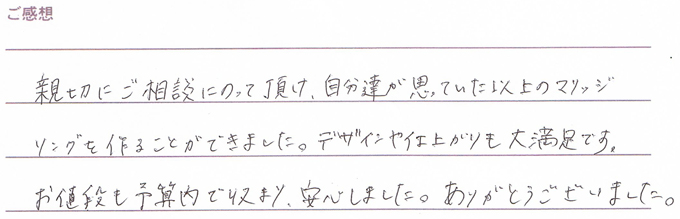 ご感想
親切にご相談にのって頂け、自分達が思っていた以上のマリッジ
リングを作ることができました。デザインや仕上がりも大満足です。
お値段も予算内で収まり、安心しました。ありがとうございました。